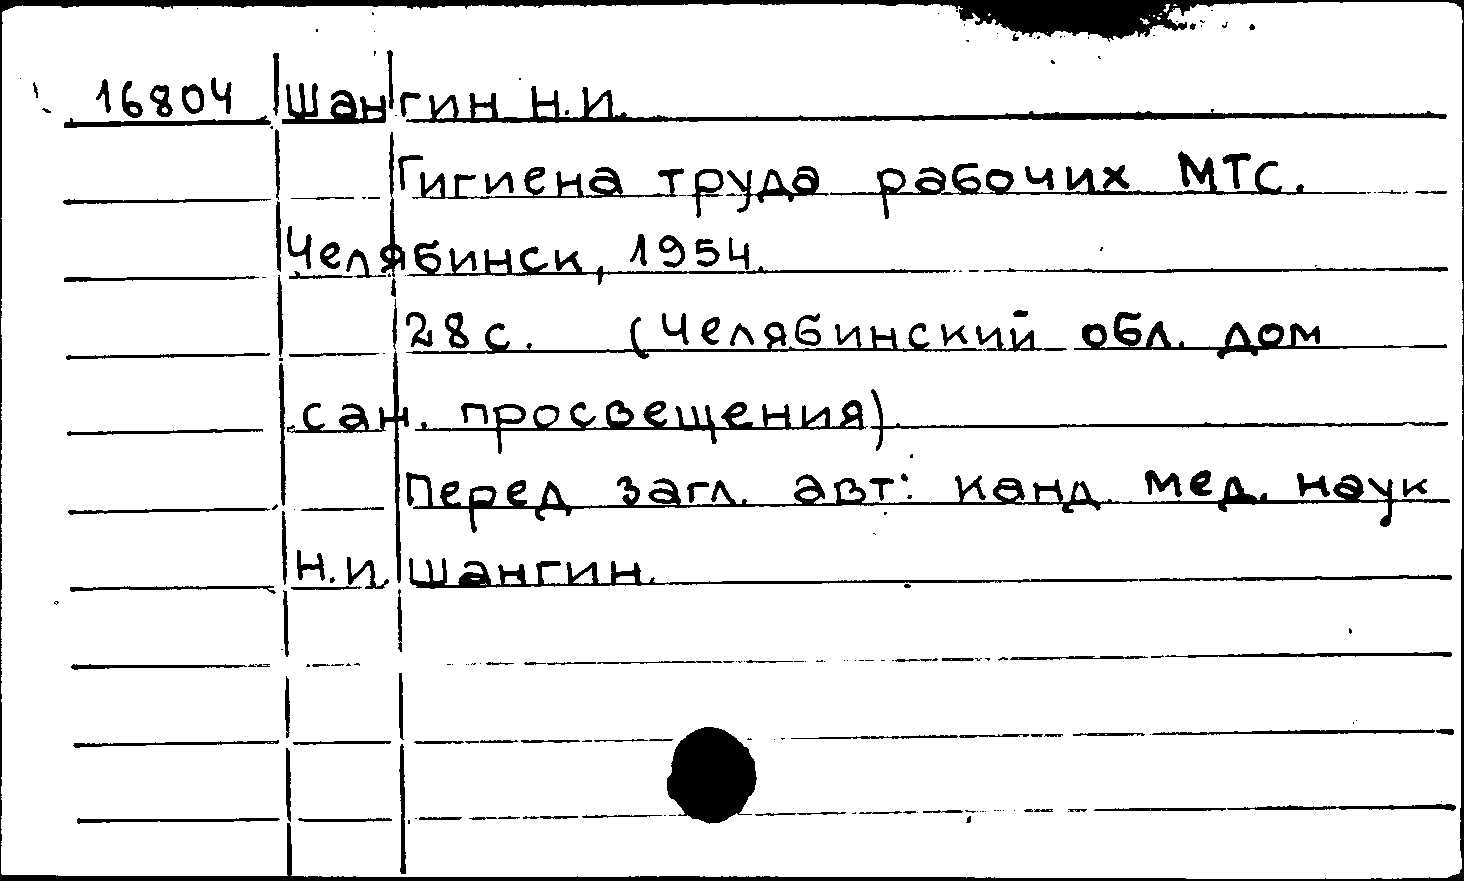 16804 Шангин Н.И.
Гигиена труда рабочих МТС.
Челябинск, 1954.
28 с. (Челябинский обл. дом
сан. просвещения)
Перед загл. авт: канд. мед. наук
Н.И. Шангин.